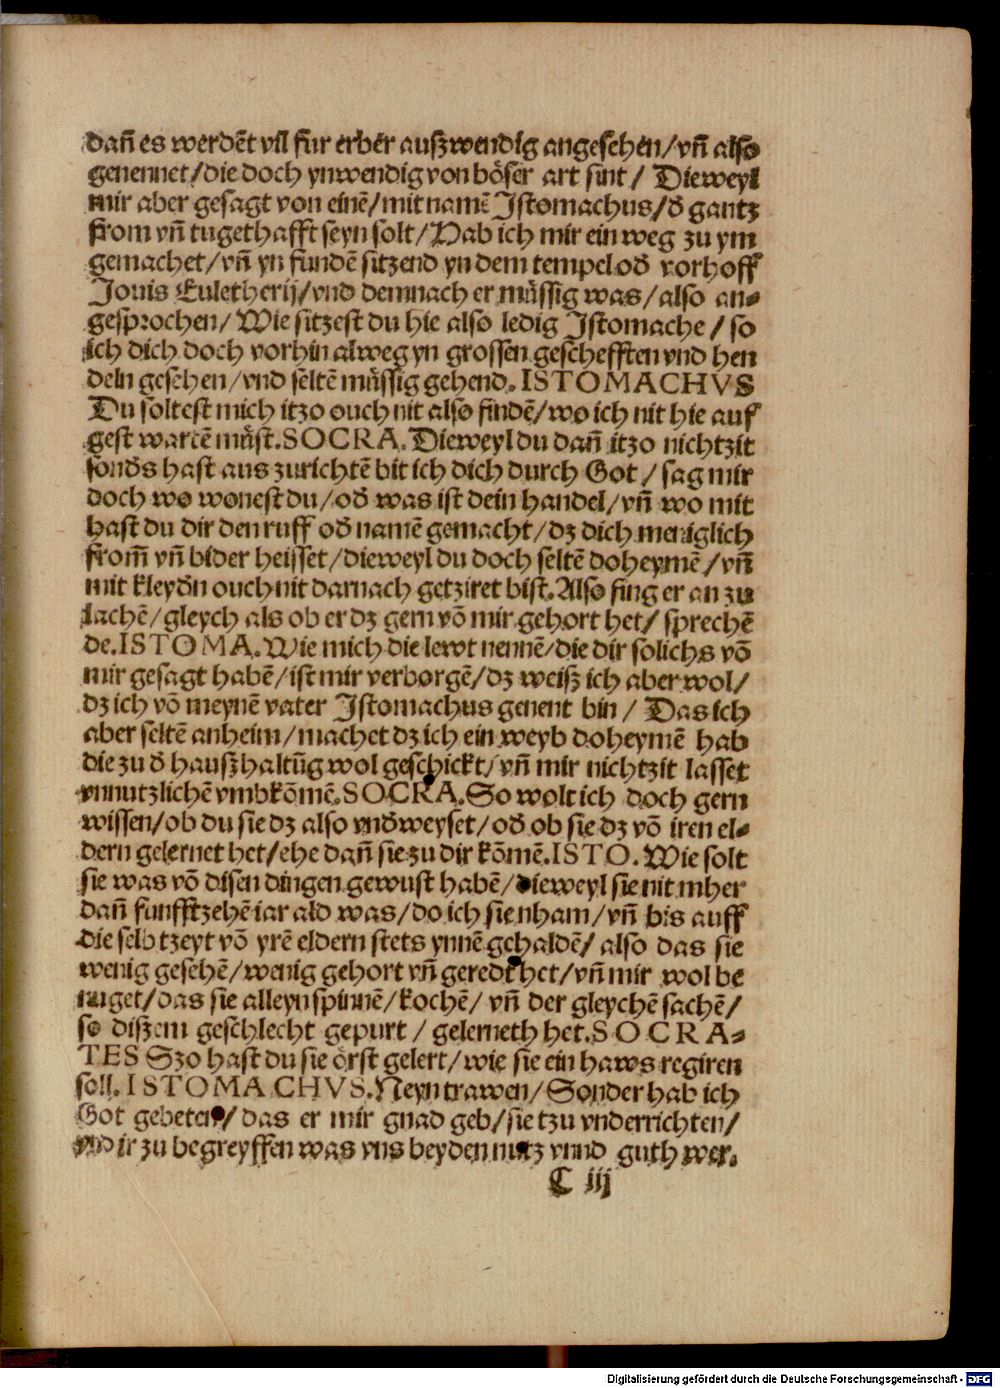 dañ es werdẽt vil fur erber außwendig angesehen/vñ also
genennet/die doch ynwendig von böser art sint/ Dieweyl
mir aber gesagt von einẽ/mit namẽ Istomachus/d̕ gantz
from vñ tugethafft seyn solt/Hab ich mir ein weg zu ym
gemachet/vñ yn fundẽ sitzend yn dem tempel od̕ vorhoff
Jouis Euletherij/vnd demnach er müssig was/also an⸗
gesprochen/Wie sitzest du hie also ledig Istomache/so
ich dich doch vorhin alweg yn grossen geschefften vnd hen
deln gesehen/vnd seltẽ müssig gehend. ISTOMACHVS
Du soltest mich itzo ouch nit also findẽ/wo ich nit hie auf
gest wartẽ müst.SOCRA. Dieweyl du dañ itzo nichtzit
sond̕s hast aus zurichtẽ bit ich dich durch Got/sag mir
doch wo wonest du/od̕ was ist dein handel/vñ wo mit
hast du dir den ruff od̕ namẽ gemacht/dz dich meniglich
from̃ vñ bider heisset/dieweyl du doch seltẽ doheymẽ/vñ
mit kleyd̕n ouch nit darnach getziret bist. Also fing er an zu
lachẽ/gleych als ob er dz gern võ mir gehort het/sprechẽ
de.ISTOMA.Wie mich die lewt nennẽ/die dir solichs võ
mir gesagt habẽ/ist mir verborgẽ/dz weiß ich aber wol/
dz ich võ meynẽ vater Istomachus genent bin/ Das ich
aber seltẽ anheim/machet dz ich ein weyb doheymẽ hab
die zu d̕ haußhaltũg wol geschickt/vñ mir nichtzit lasset
vnnutzlichẽ vmbkõmẽ.SOCRA.So wolt ich doch gern
wissen/ob du sie dz also vnd̕weyset/od̕ ob sie dz võ iren el⸗
dern gelernet het/ehe dañ sie zu dir kõmẽ.ISTO.Wie solt
sie was võ disen dingen gewust habẽ/dieweyl sie nit mher
dañ funfftzehẽ iar ald was/do ich sie nham/vñ bis auff
die selb tzeyt võ yrẽ eldern stets ynnẽ gehaldẽ/ also das sie
wenig gesehẽ/wenig gehort vñ geredt het/vñ mir wol be
nuget/das sie alleyn spinnẽ/kochẽ/ vñ der gleychẽ sachẽ/
so dißem geschlecht gepurt/gelerneth het.SOCRA⸗
TES Szo hast du sie örst gelert/wie sie ein haws regiren
soll.ISTOMACHVS.Neyn trawen/Sonder hab ich
Got gebeten/das er mir gnad geb/sie tzu vnderrichten/
vnd ir zu begreyffen was vns beyden nutz vnnd guth wer.
C iij
Digitalisierung gefördert durch die Deutsche Forschungsgemeinschaft - DFG